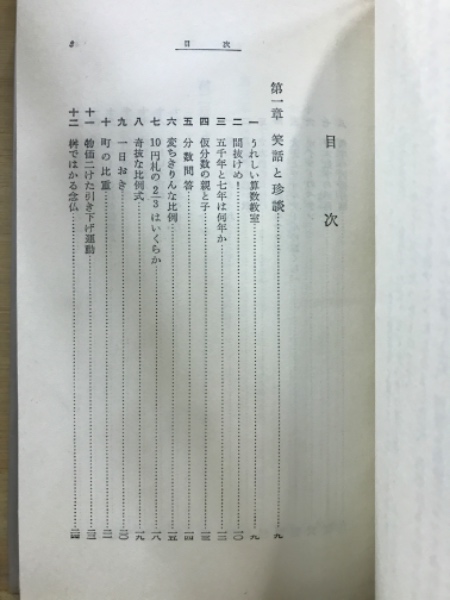 目次
3
目次
第一章 笑話と珍談……九
一 うれしい算数教室……九
二 間抜けめ!……一〇
三 五千年と七年は何年か……一二
四 仮分数の親と子……一三
五 分数問答……一四
六 変ちきりんな比例……一五
七 10円札の2/3はいくらか……一八
八 奇抜な比例式……一九
九 一日おき……二〇
十 町の比重……二一
十一 物価二けた引き下げ運動……二三
十二 桝ではかる念仏……二四